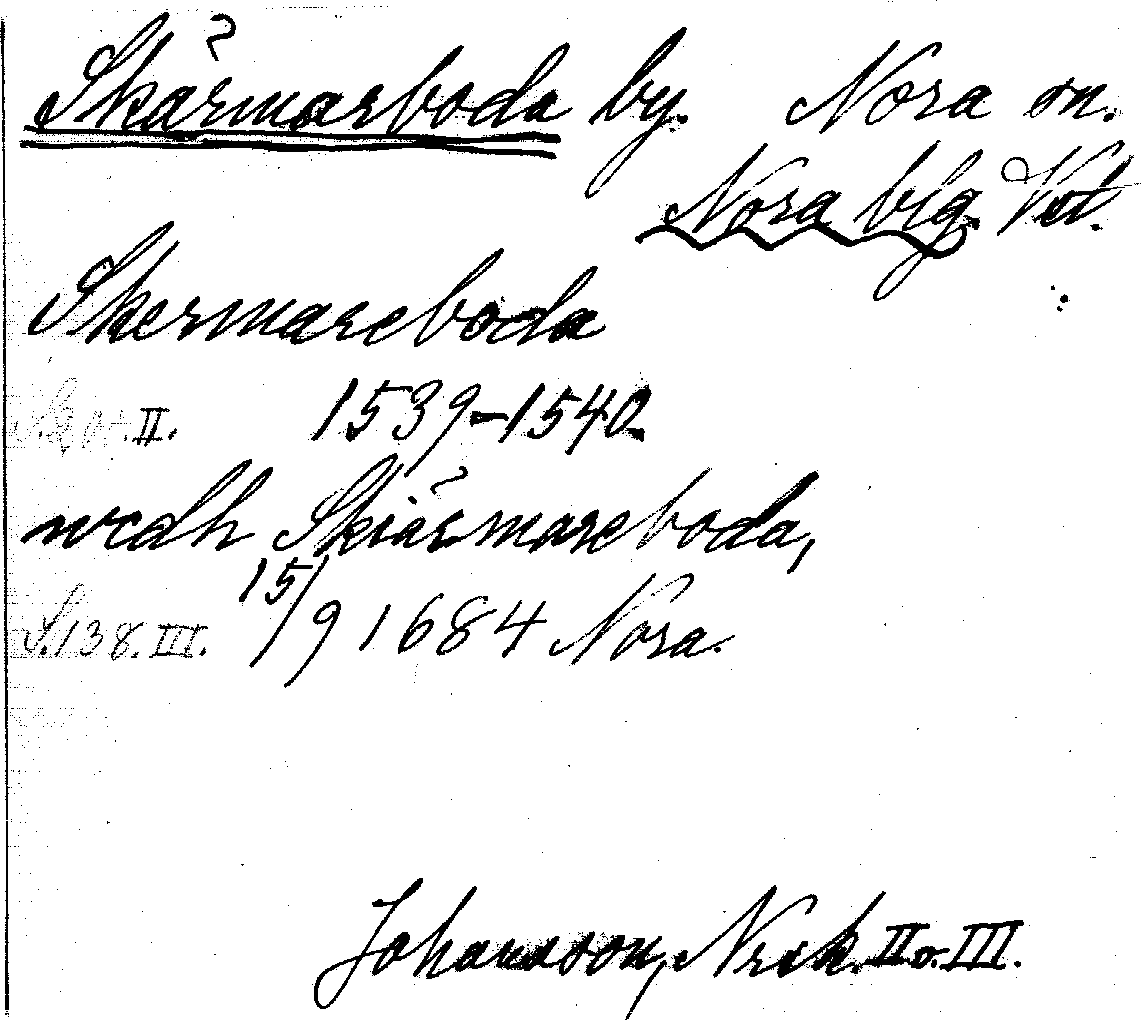 Skärmarboda by. Nora sn.
Nora blg. Vstl.
Skermareboda
II. 1539-1540.
wedh Skiärmareboda,
S. 138. III. 15/9 1684 Nora.
Johansson, Nrsk. II o. III.